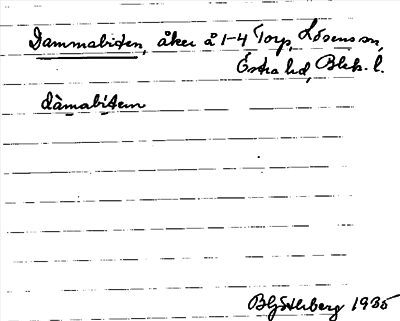 Dammabiten, åker å 1-4 Torp, Lösens sn,
Östra hd, Blek. l.
dàmabìten
B Göthberg 1935